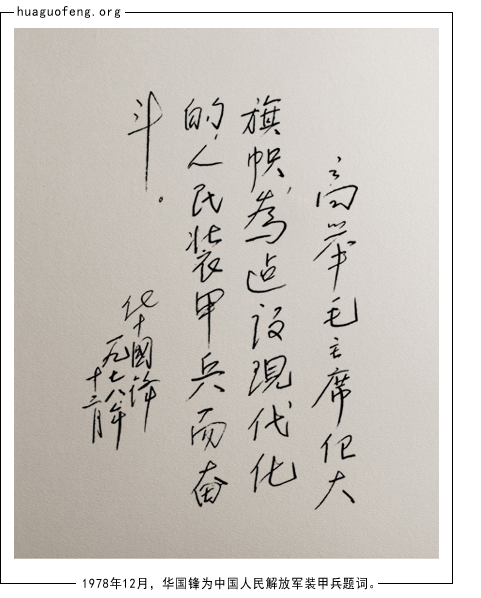 huaguofeng.org
高举毛主席伟大
旗帜,為迠设現代化
的人民装甲兵而奋
斗。
华國锋
一九七八年
十二月
1978年12月，华国锋为中国人民解放军装甲兵题词。